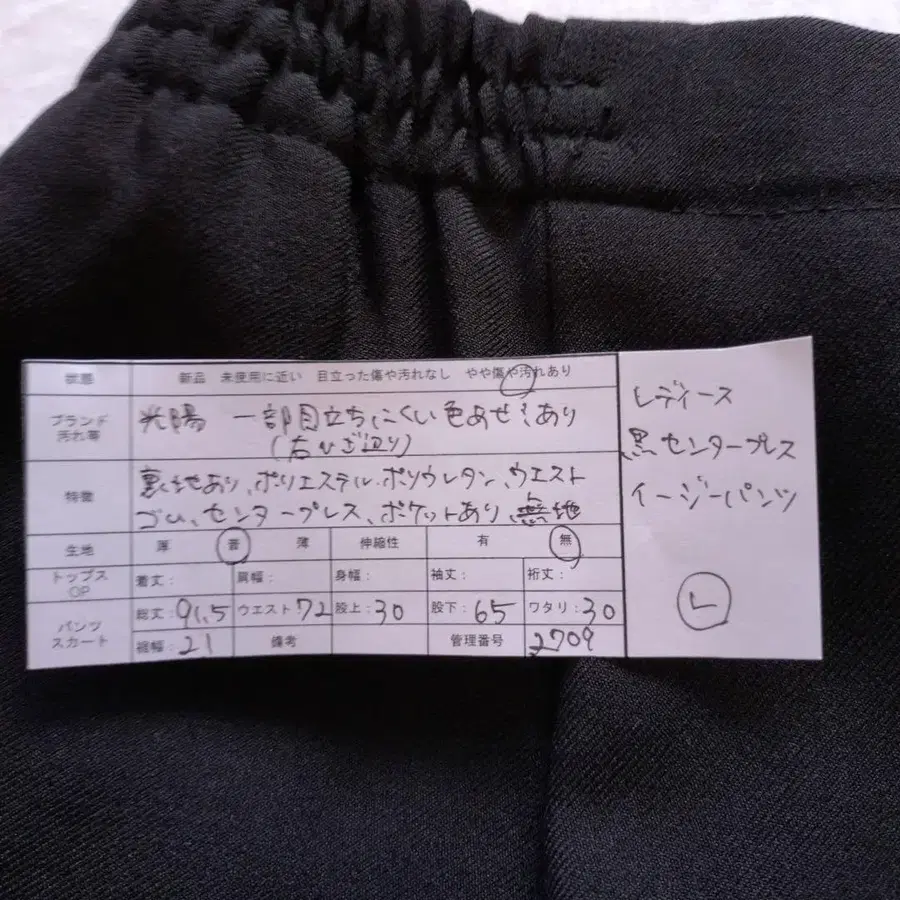 状態 新品 未使用に近い 目立った傷や汚れなし やや傷や汚れあり
ブランド 汚れ等
光陽 一部目立ちにくい色あせあり
(右ひざ辺り)
特徴
裏地あり、ポリエステル、ポリウレタン、ウエスト
ゴム、センタープレス、ポケットあり、無地
生地 厚 普 薄 伸縮性 有 無
トップス OP 着丈: 肩幅: 身幅: 袖丈: 裄丈:
パンツ スカート 総丈:91,5 ウエスト72 股上:30 股下:65 ワタリ:30
裾幅:21 備考 管理番号 2709
レディース
黒センタープレス
イージーパンツ
L